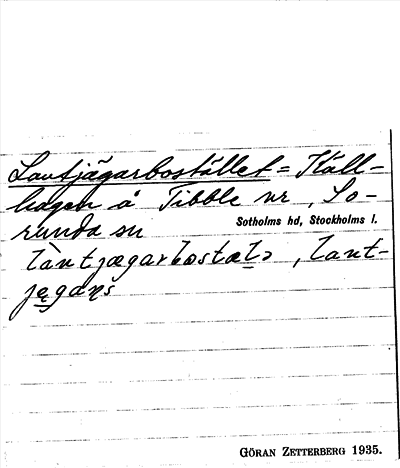 Lantjägarbostället = Käll-
hagen å Tibble nr, So-
runda sn
Sotholms hd, Stockholms l.
làntjægarbostæḷɔ, lant-
jęgaṇš
GÖRAN ZETTERBERG 1935.